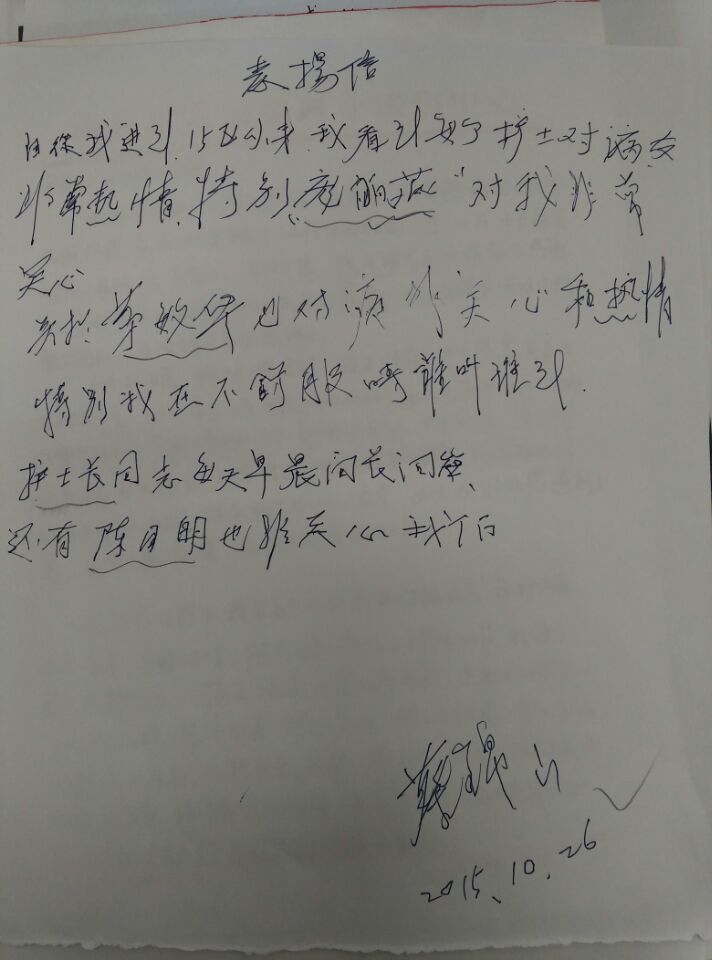 表揚信
自从我进到15区以来 我看到每个护士对病友
非常热情 特别"庞丽燕"对我非常
关心
护士 敏华也对病 关心和热情
特别我在不舒服时誰叫誰到.
护士长同志每天早晨问长问
还有陈月明也 关心我们
山
2015.10.26